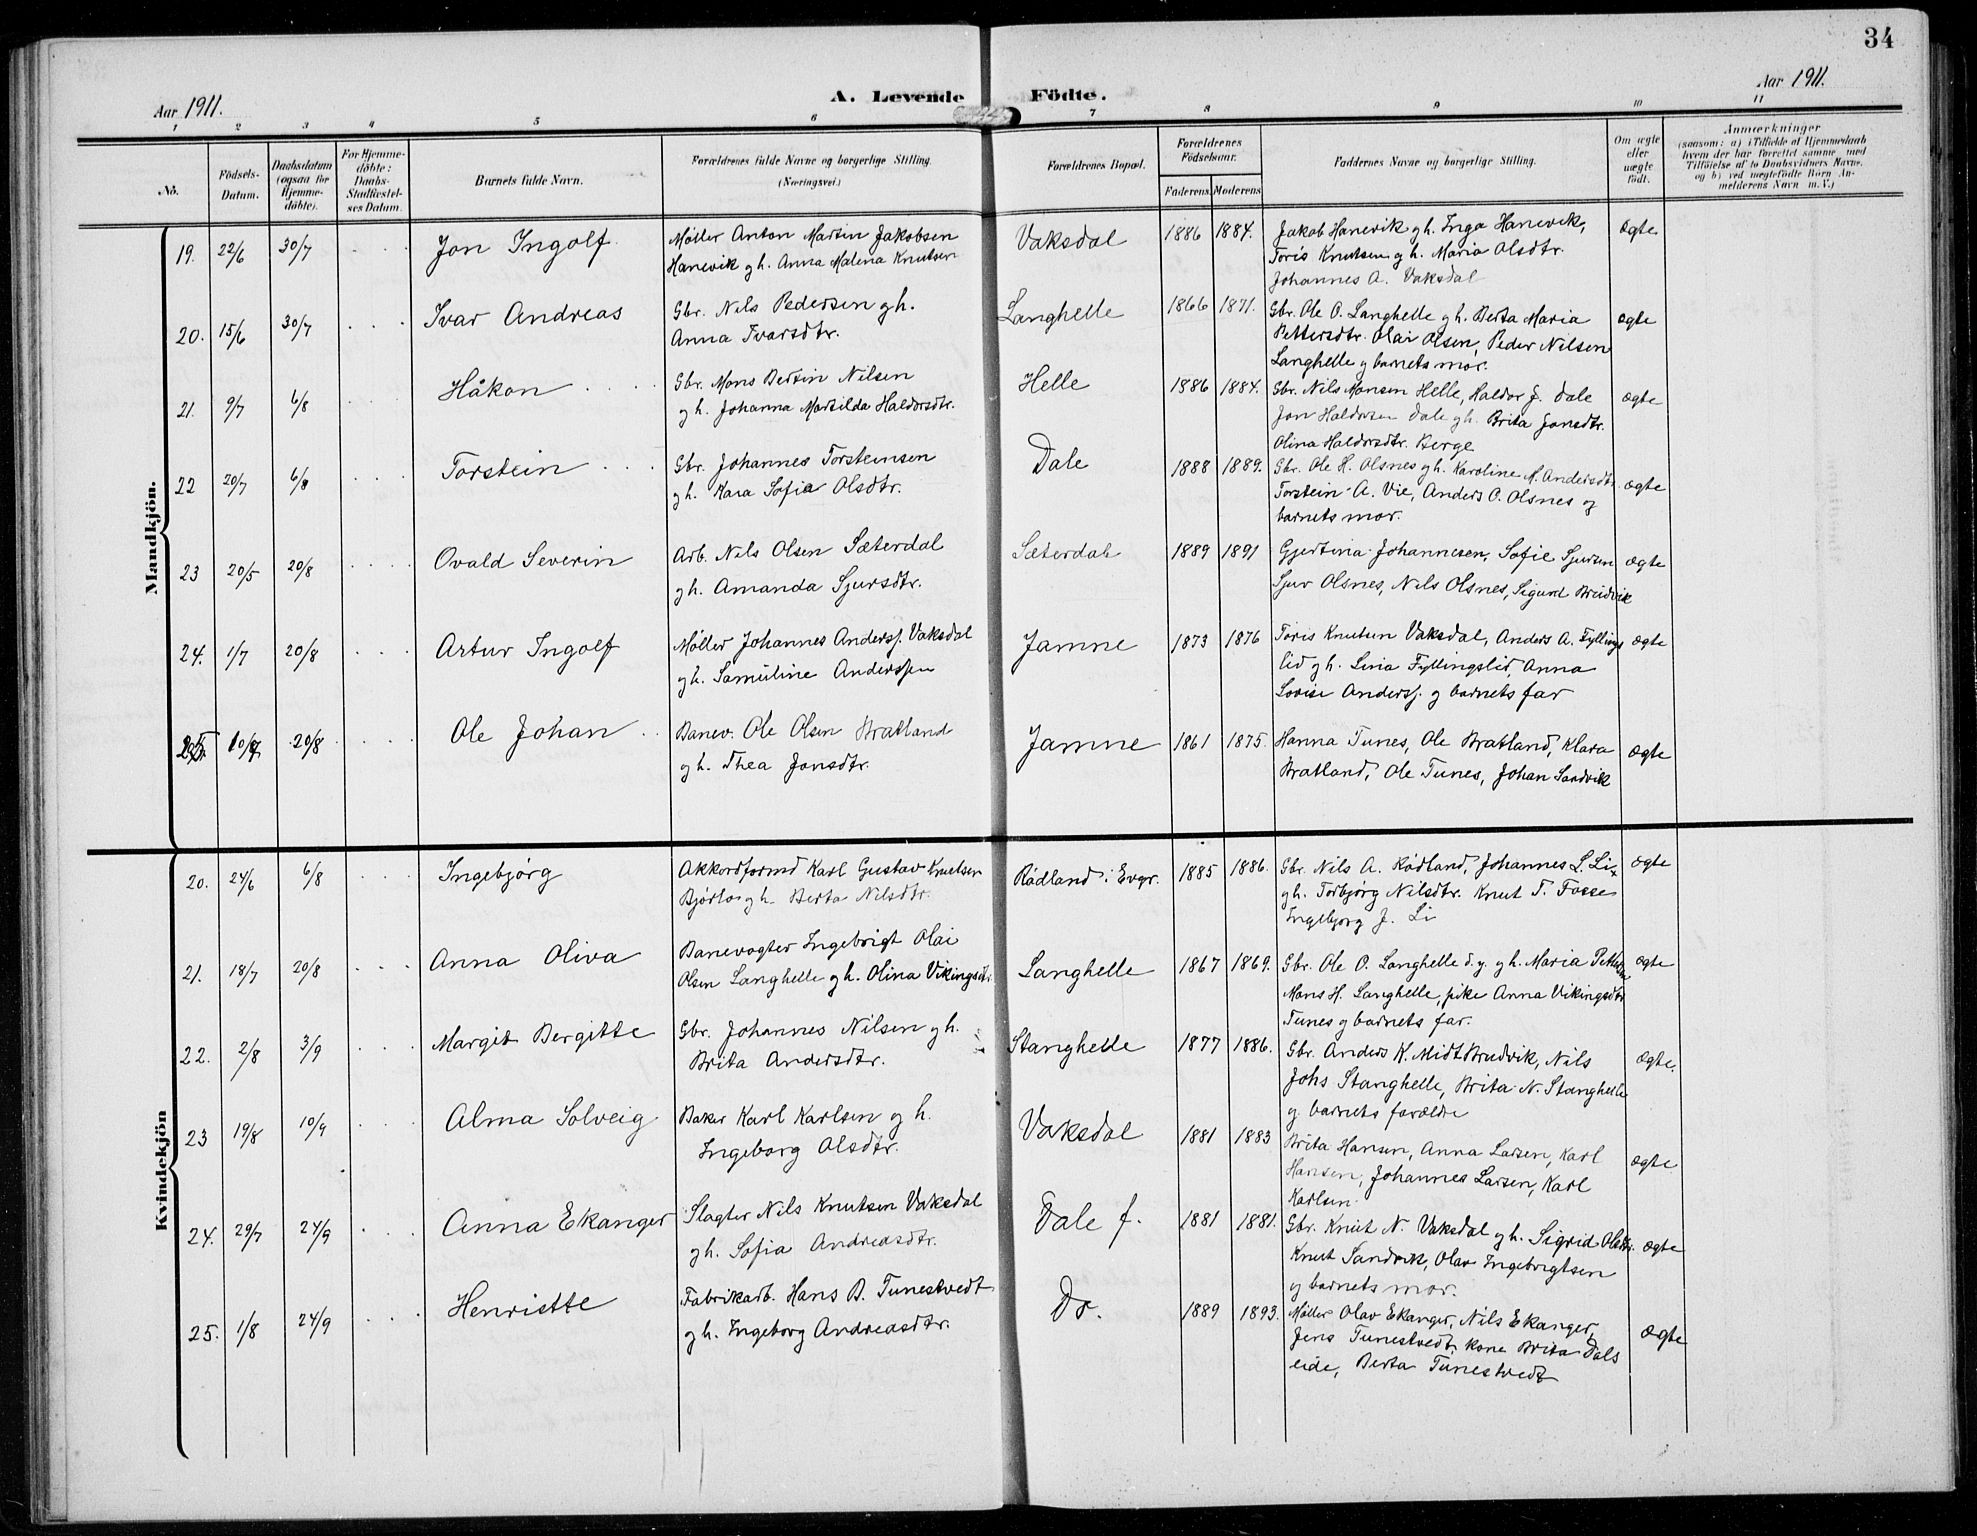 34
Aar 1911.
A. Levende Födte.
Aar 1911.
1 2 3 4 5 6 7 8 9 10 11
No.
Födsels-Datum.
Daabsdatum (ogsaa for Hjemme-döbte).
For Hjemme-döbte: Daabs-Stadfæstel-ses Datum.
Barnets fulde Navn.
Forældrenes fulde Navne og borgerlige Stilling. (Næringsvei.)
Forældrenes Bopæl.
Forældrenes Födselsaar.
Faderens Moderens
Faddernes Navne og borgerlige Stilling.
Om ægte eller uægte födt.
Anmærkninger
(saasom: a) i Tilfælde af Hjemmedaab
hvem der har forrettet samme med
Tilföielse af to Daabsvidners Navne.
og b) ved uægtefödte Börn An-
melderens Navn m. V.)
Mandkjön.
19. 22/6 30/7 Jon Ingolf Møller Anton Martin Jakobsen Vaksdal 1886 1884. Jakob Hanevik gh. Inga Hanevik, ægte
Hanevik gh. Anna Malena Knutsen Toris Knutsen gh. Maria Olsdtr.
Johannes A. Vaksdal
20. 15/6 30/7 Ivar Andreas Gbr. Nils Pedersen gh. Langhelle 1866 1871. Gbr. Ole O. Langhelle gh. Berta Maria ægte
Anna Ivarsdtr. Pettersdtr. Olai Olsen, Peder Nilsen
Langhelle g barnets mor.
21. 9/7 6/8 Håkon Gbr. Mons Bertin Nilsen Helle 1886 1884. Gbr. Nils Monsen Helle, Haldor J. Dale ægte
gh. Johanna Martilda Haldorsdtr. Jon Haldorsen Dale gh. Brita Jonsdtr.
Olina Haldorsdtr. Berge
22 20/7 6/8 Torstein Gbr. Johannes Torsteinsen Dale 1888 1889. Gbr. Ole H. Olsnes gh. Karoline M. Andersdtr. ægte
gh. Kara Sofia Olsdtr. Torstein A. Vie, Anders O. Olsnes og
barnets mor.
23 20/5 20/8 Ovald Severin Arb. Nils Olsen Sæterdal Sæterdal 1889 1891 Gjertina Johannesen, Sofie Sjursen ægte
gh. Amanda Sjursdtr. Sjur Olsnes, Nils Olsnes, Sigurd Brudvik
24. 1/7 20/8 Artur Ingolf Møller Johannes Anderss. Vaksdal Jamne 1873 1876 Toris Knutsen Vaksdal, Anders A. Fyllings ægte
gh. Samuline Anderssen lid gh. Lina Fyllingslid, Anna
Lovise Anderss. g barnets far
25. 10/7 20/8 Ole Johan Banev. Ole Olsen Bratland Jamne 1861 1875. Hanna Tunes, Ole Bratland, Klara ægte
gh. Thea Jonsdtr. Bratland, Ole Tunes, Johan Sandvik
Kvindekjön
20. 24/6 6/8 Ingebjørg Akkordformd Karl Gustav Knutsen Rødland i Evgr. 1885 1886. Gbr. Nils A. Rødland, Johannes L. Li ægte
Bjørlo gh. Berta Nilsdtr. gh. Torbjørg Nilsdtr. Knut T. Fosse
Ingebjorg J. Li
21. 18/7 20/8 Anna Oliva Banevogter Ingebrigt Olai Langhelle 1867 1869. Gbr. Ole O. Langhelle d.y. gh. Maria Pettersdtr ægte
Olsen Langhelle gh. Olina Vikingsdtr. Mons H. Langhelle, pike Anna Vikingsdtr
Tunes g barnets far.
22. 2/8 3/9 Margit Bergitte Gbr. Johannes Nilsen gh. Stanghelle 1877 1886. Gbr. Anders K. Midt Bruvik, Nils ægte.
Brita Andersdtr. Johs Stanghelle, Brita N. Stanghelle
g barnets forældre
23 19/8 10/9 Alma Solveig Baker Karl Karlsen g h. Vaksdal 1881 1883 Brita Hansen, Anna Larsen, Karl ægte
Ingeborg Olsdtr. Hansen, Johannes Larsen, Karl
Karlsen
24. 29/7 24/9 Anna Ekanger Slagter Nils Knutsen Vaksdal Dale f. 1881 1881. Gbr. Knut N. Vaksdal gh. Sigrid Olsdtr. ægte
gh. Sofia Andreasdtr. Knut Sandvik, Olav Ingebrigtsen
g barnets mor.
25. 1/8 24/9 Henriette Fabrikarb. Hans B. Tunestvedt Do. 1889 1893. Møller Olav Ekanger, Nils Ekanger, ægte
gh. Ingeborg Andreasdtr. Jens Tunestvedt, kone Brita Dals
eide, Berta Tunestvedt